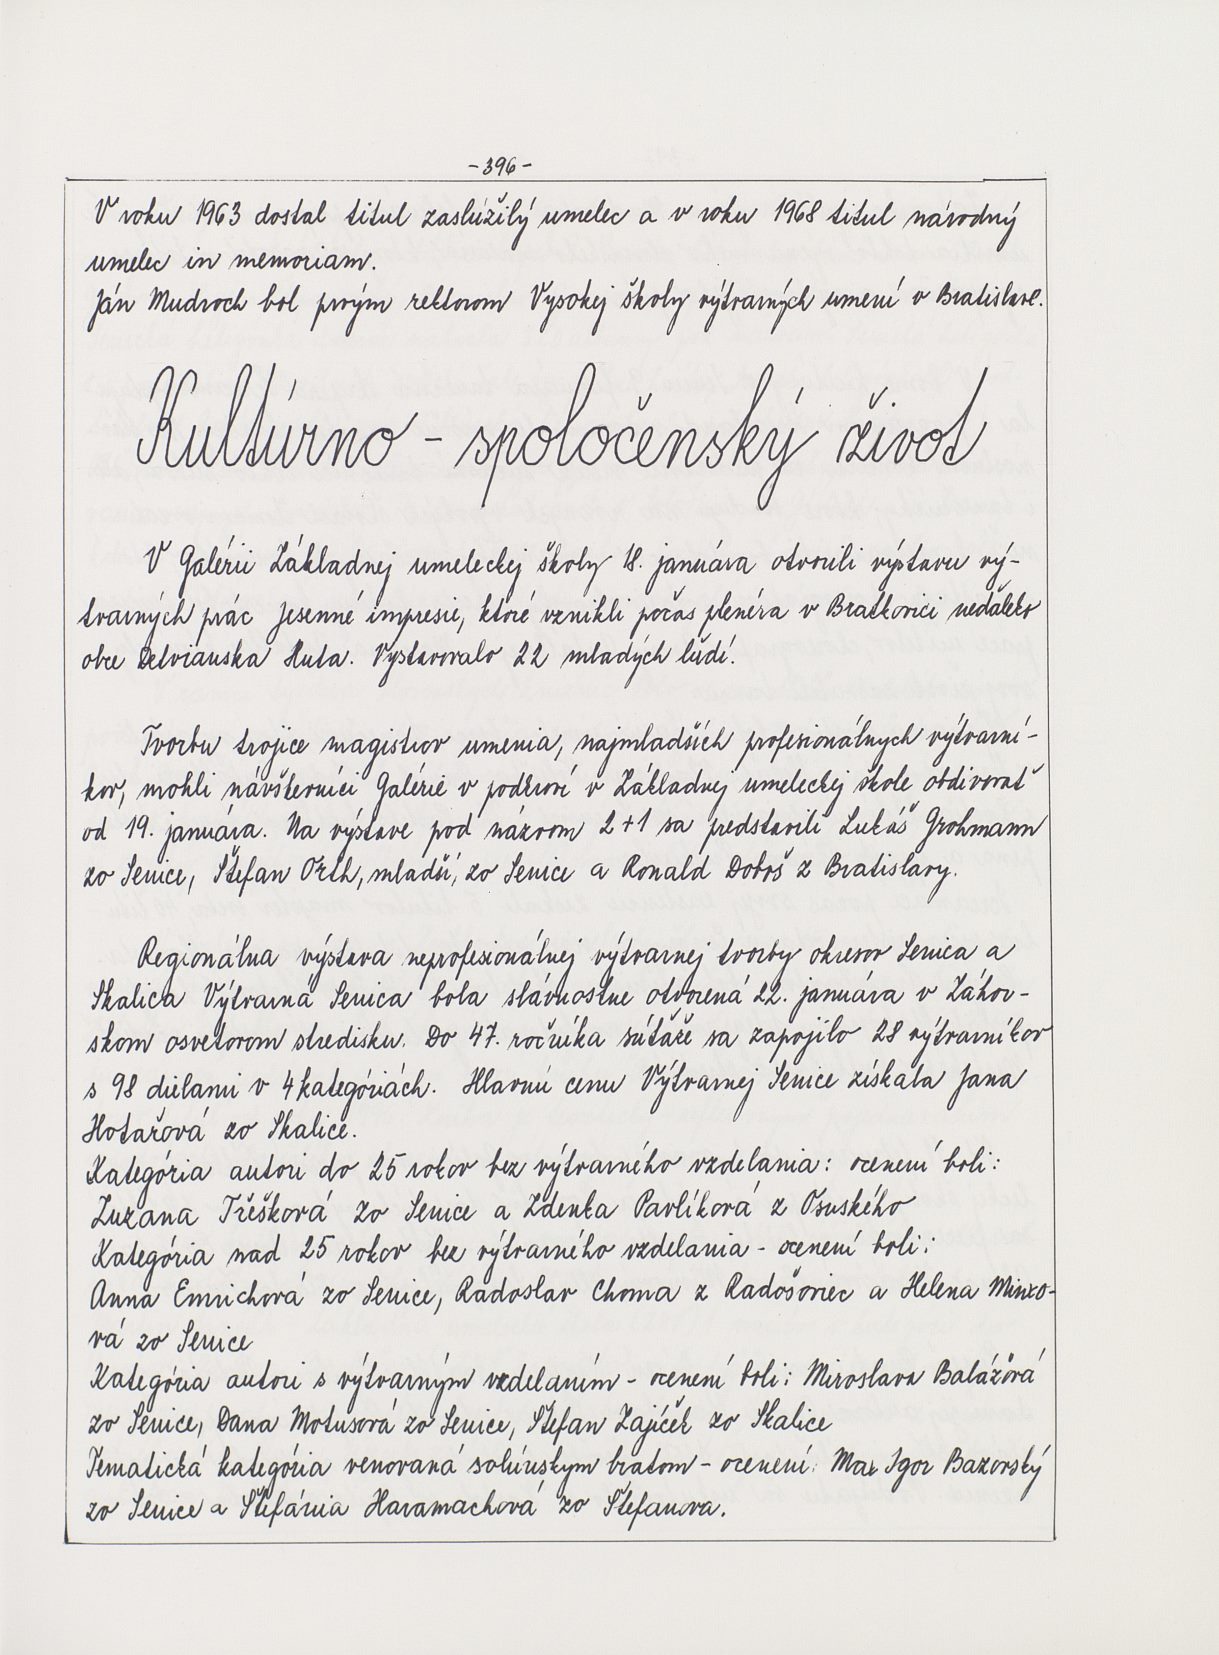 -396-
V roku 1963 dostal titul zaslúžilý umelec a v roku 1968 titul národný
umelec in memoriam.
Ján Mudroch bol prvým rektorom Vysokej školy výtvarných umení v Bratislave.
Kultúrno - spoločenský život
V Galérii Základnej umeleckej školy 18. januára otvorili výstavu vý-
tvarných prác Jesenné impresie, ktoré vznikli počas plenéra v Bratkovici neďaleko
obce Detvianska Huta. Vystavovalo 22 mladých ľudí.
Tvorbu trojice magistrov umenia, najmladších profesionálnych výtvarní-
kov, mohli návštevníci Galérie v podkroví v Základnej umeleckej škole obdivovať
od 19. januára. Na výstave pod názvom 2+1 sa predstavili Lukáš Grohmann
zo Senice, Štefan Orth, mladší, zo Senice a Ronald Doboš z Bratislavy.
Regionálna výstava neprofesionálnej výtvarnej tvorby okresov Senica a
Skalica Výtvarná Senica bola slávnostne otvorená 22. januára v Záhor-
skom osvetovom stredisku. Do 47. ročníka súťaže sa zapojilo 28 výtvarníkov
s 98 dielami v 4 kategóriách. Hlavnú cenu Výtvarnej Senice získala Jana
Hotařová zo Skalice.
Kategória autori do 25 rokov bez výtvarného vzdelania: ocenení boli:
Zuzana Třešková zo Senice a Zdenka Pavlíková z Osuského
Kategória nad 25 rokov bez výtvarného vzdelania - ocenení boli:
Anna Emrichová zo Senice, Radoslav Choma z Radošoviec a Helena Minxo-
vá zo Senice
Kategória autori s výtvarným vzdelaním - ocenení boli: Miroslava Balážová
zo Senice, Dana Motusová zo Senice, Štefan Zajíček zo Skalice
Tematická kategória venovaná solúnskym bratom - ocenení: Max Igor Bazovský
zo Senice a Štefánia Haramachová zo Štefanova.